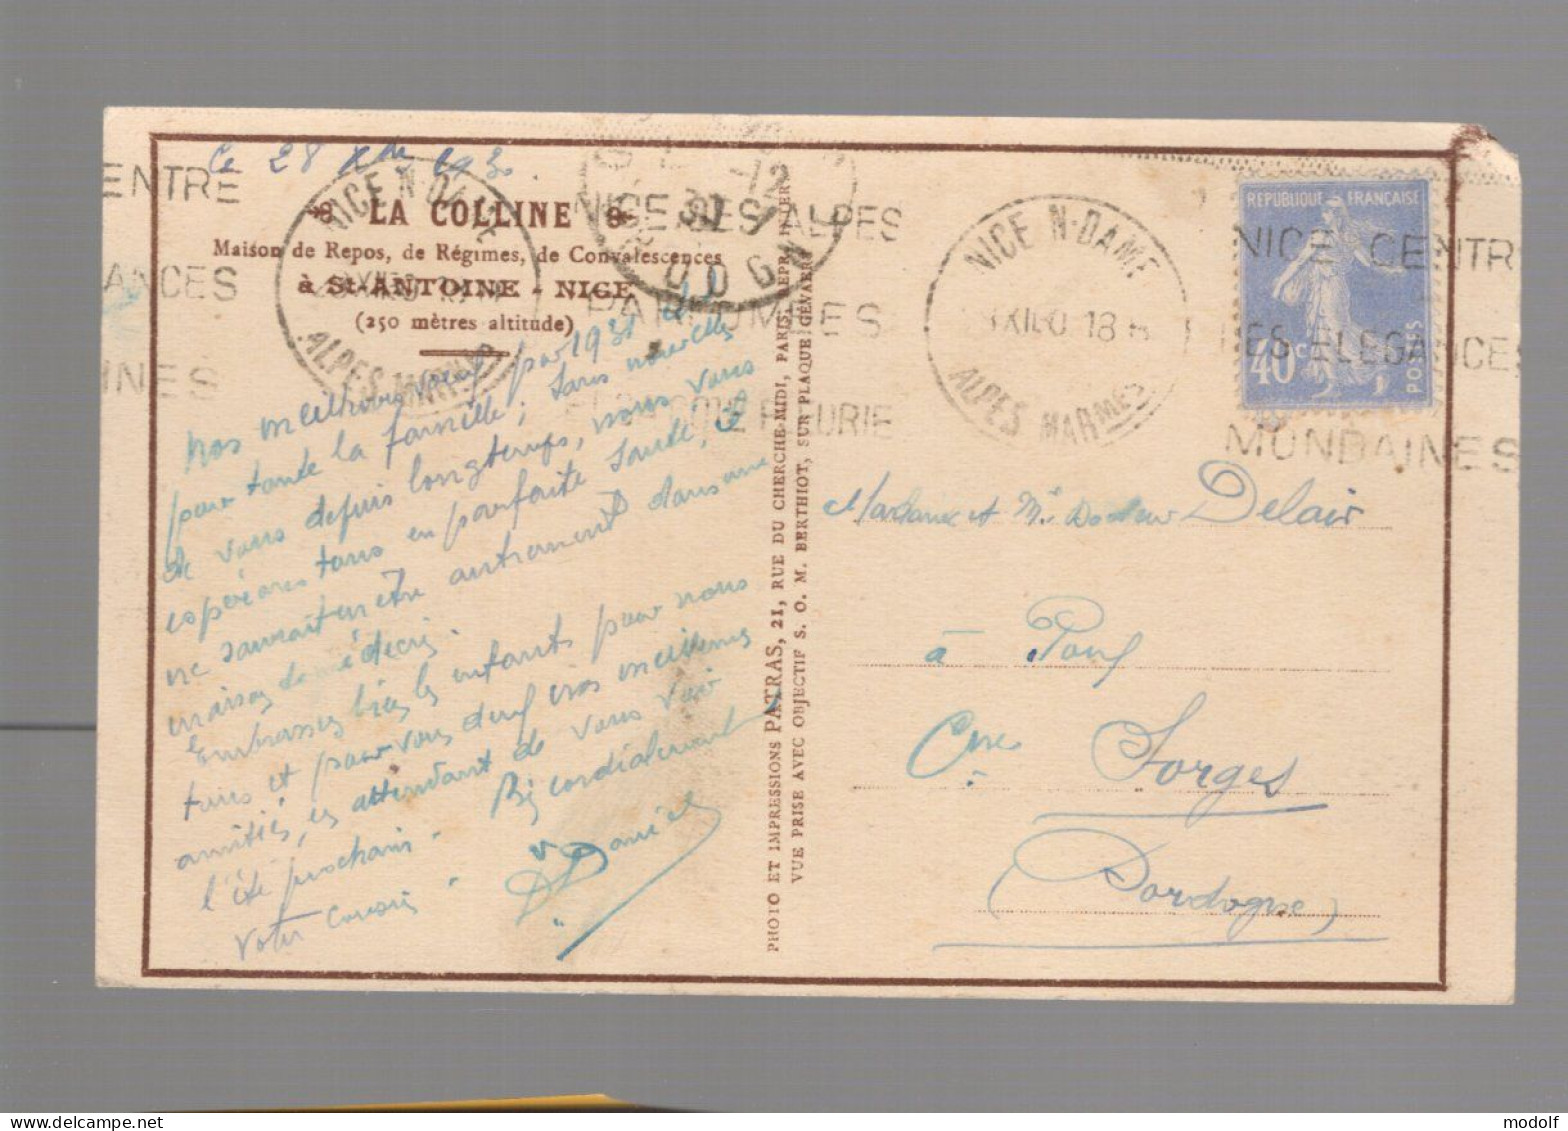 Ce 28 Xbre 1930
LA COLLINE
Maison de Repos, de Régimes, de Convalescences
à St-ANTOINE - NICE
(250 mètres altitude)
Nos meilleurs voeux pour 1931 et
pour toute la famille; Sans nouvelles
de vous depuis longtemps, nous vous
espérons tous en parfaite santé, il
ne saurait en être autrement dans une
maison de médecin.
Embrassez bien les enfants pour nous
tous et pour vous deux nos meilleures
amitiés, en attendant de vous voir
l'été prochain. Bien cordialement
Votre cousin.
Dr Daniel
PHOTO ET IMPRESSIONS PATRAS, 21, RUE DU CHERCHE-MIDI, PARIS.
VUE PRISE AVEC OBJECTIF S. O. M. BERTHIOT, SUR PLAQUE GEVAERT
NICE N-DAME
ALPES MARMES
XII 30 18
NICE N-DAME
ALPES MARMES
30
12
ENTRE
ANCES
INES
NICE SES ALPES
PARFUMÉES
FLEURIE
NICE CENTR
DES ELEGANCES
MONDAINES
REPUBLIQUE FRANÇAISE
40c
POSTES
Madame et Mr Docteur Delair
à Pouf
Cne Sorges
(Dordogne)
modolf